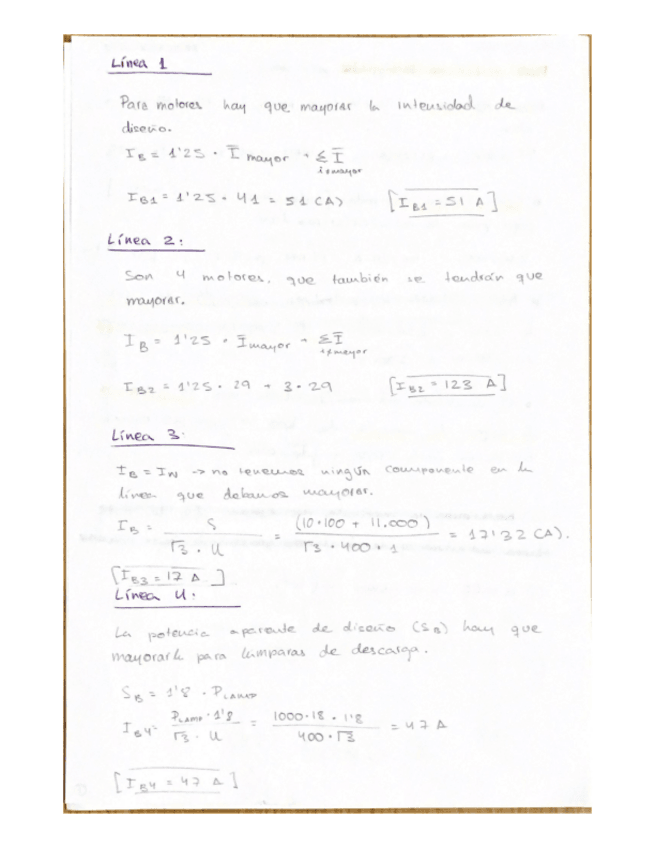 Línea 1
Para motores hay que mayorar la intensidad de
diseño.
I_B = 1'25 · Ī mayor + Σ Ī
i≠mayor
I_B1 = 1'25 · 41 = 51 (A) [I_B1 = 51 A]
Línea 2:
Son 4 motores, que también se tendrán que
mayorar.
I_B = 1'25 · Ī mayor + Σ Ī
i≠mayor
I_B2 = 1'25 · 29 + 3 · 29 [I_B2 = 123 A]
Línea 3:
I_B = I_N -> no tenemos ningún componente en la
línea que debamos mayorar.
I_B = S / (√3 · U) = (10·100 + 11.000) / (√3 · 400 · 1) = 17'32 (A).
[I_B3 = 17 A]
Línea 4:
La potencia aparente de diseño (S_B) hay que
mayorarla para lámparas de descarga.
S_B = 1'8 · P_LAMP
I_B4 = P_LAMP · 1'8 / (√3 · U) = 1000·18 · 1'8 / (400 · √3) = 47 A
[I_B4 = 47 A]